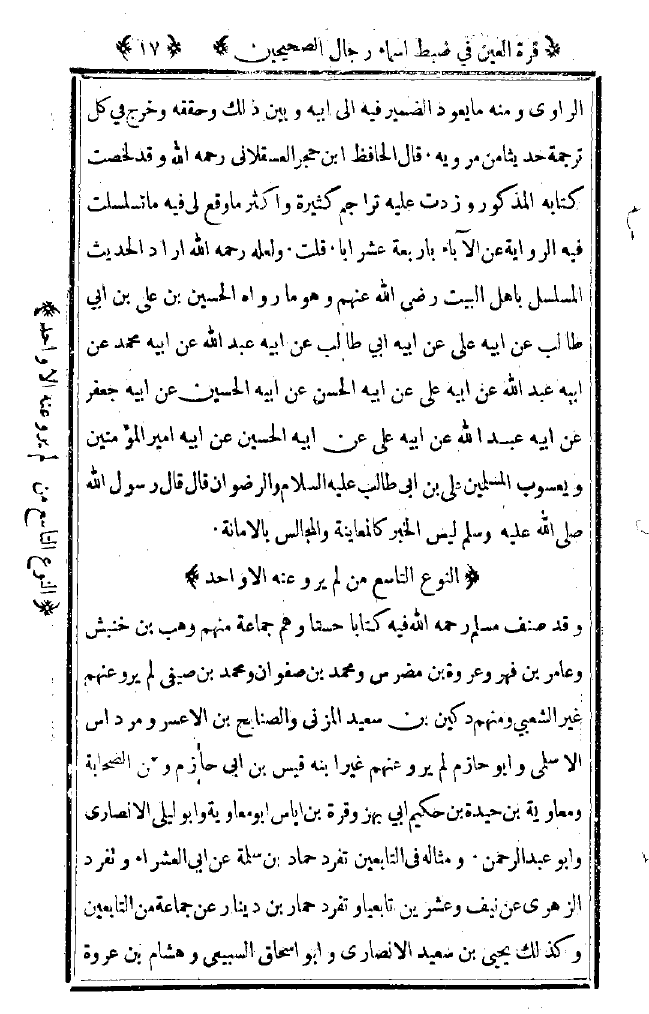 ﴿ قرة العين في ضبط اسماء رجال الصحيحين ﴾ ﴿ ١٧ ﴾
الراوى ومنه مايعود الضمير فيه الى ابيه وبين ذلك وحققه وخرج في كل
ترجمة حديثا من مرويه ٠ قال الحافظ ابن حجر العسقلانى رحمه الله وقد لخصت
كتابه المذكور وزدت عليه تراجم كثيرة واكثر ما وقع لى فيه ما تسلسلت
فيه الرواية عن الآباء باربعة عشر ابا ٠ قلت ٠ ولعله رحمه الله اراد الحديث
المسلسل باهل البيت رضى الله عنهم وهو ما رواه الحسين بن على بن ابي
طالب عن ابيه على عن ابيه ابي طالب عن ابيه عبد الله عن ابيه محمد عن
ابيه عبد الله عن ابيه على عن ابيه الحسن عن ابيه الحسين عن ابيه جعفر
عن ابيه عبد الله عن ابيه على عن ابيه الحسين عن ابيه امير المؤمنين
ويعسوب المسلمين على بن ابى طالب عليه السلام والرضوان قال قال رسول الله
صلى الله عليه وسلم ليس الخبر كالمعاينة والمجالس بالامانة ٠
﴿ النوع التاسع من لم يرو عنه الا واحد ﴾
وقد صنف مسلم رحمه الله فيه كتابا حسنا وهم جماعة منهم وهب بن خنبش
وعامر بن فهر وعروة بن مضرس ومحمد بن صفوان ومحمد بن صيفى لم يرو عنهم
غير الشعبي ومنهم دكين بن سعيد المزنى والصنابح بن الاعسر ومرداس
الاسلمى وابو حازم لم يرو عنهم غير ابنه قيس بن ابى حازم ومن الصحابة
ومعاوية بن حيدة بن حكيم ابي بهز وقرة بن اياس ابو معاوية وابو ليلى الانصارى
وابو عبد الرحمن ٠ ومثاله فى التابعين تفرد حماد بن سلمة عن ابى العشراء وتفرد
الزهرى عن نيف وعشرين تابعيا وتفرد حمار بن دينار عن جماعة من التابعين
وكذلك يحيى بن سعيد الانصارى وابو اسحاق السبيعى وهشام بن عروة
﴿ النوع التاسع من لم يرو عنه الا واحد ﴾